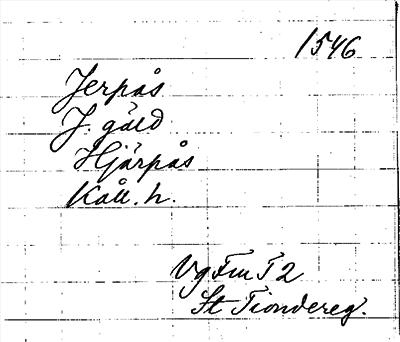 1546
Jerpås
J. gäld
Hjärpås
Kåll. h.
Vg Fm T 2
St Tiondereg.